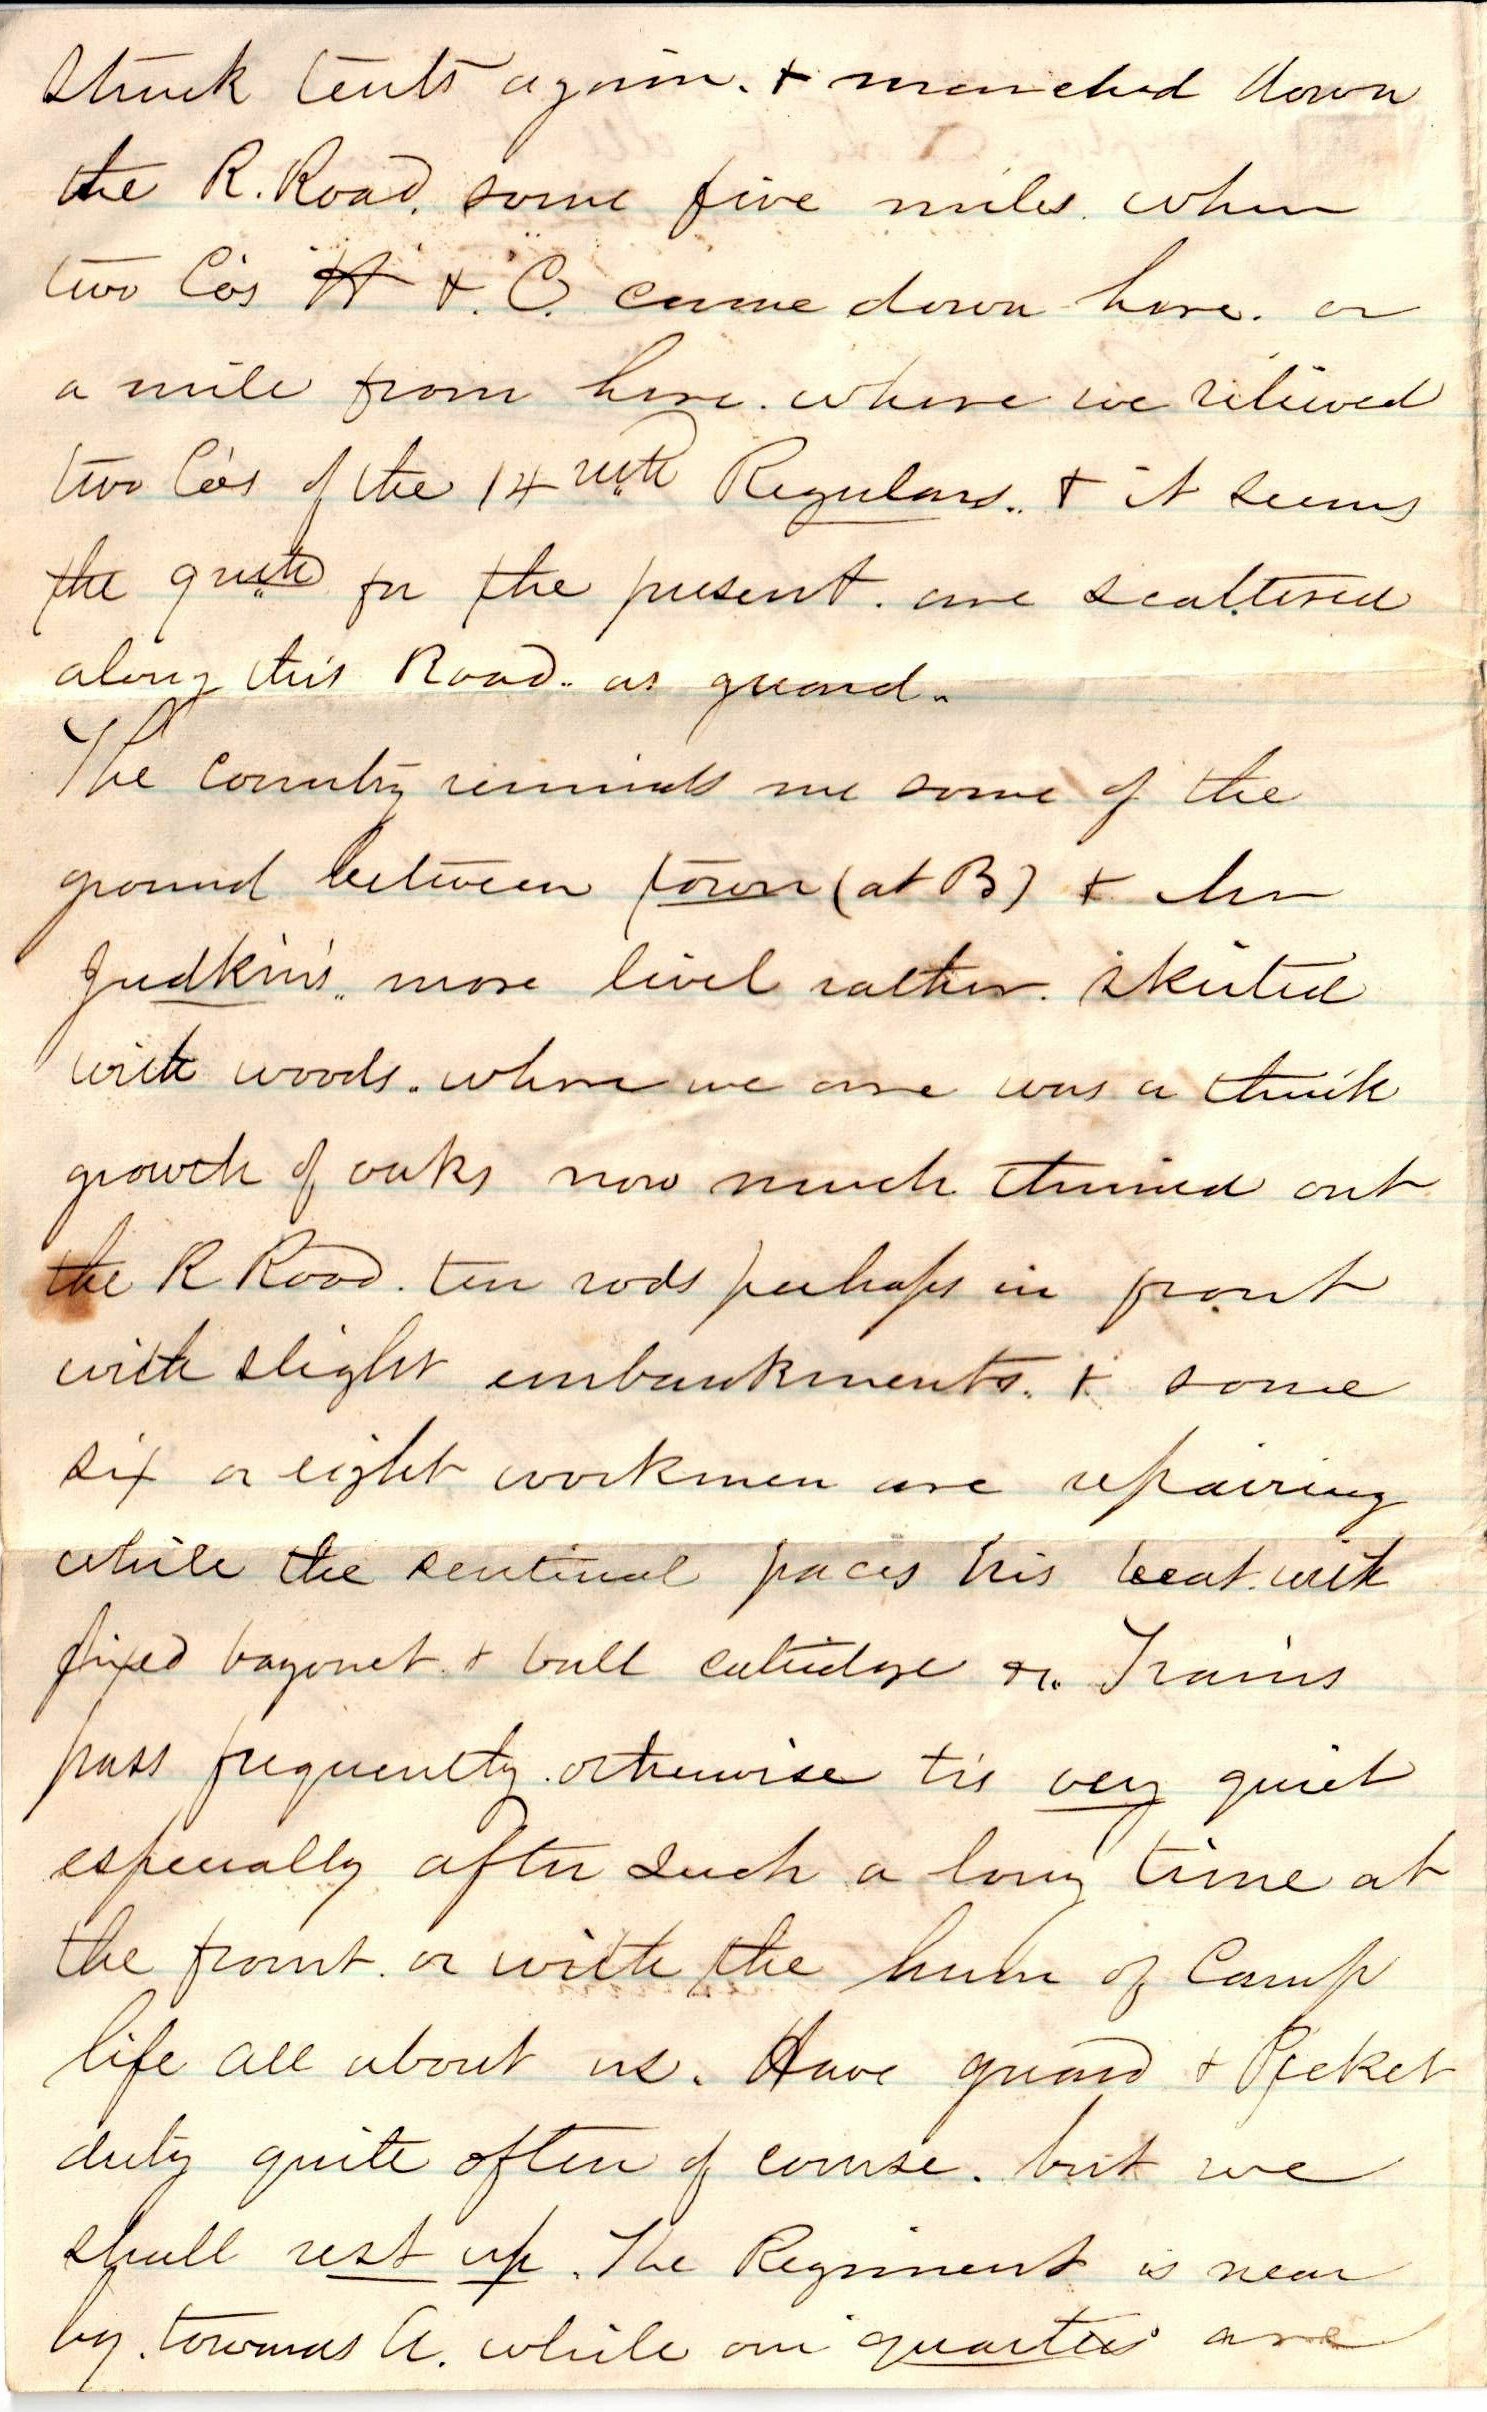 Struck tents again. & marched down
the R. Road. some five miles. when
two Co's "H" & "C." came down here. or
a mile from here. where we relieved
two Co's of the 14 Regulars.. & it seems
the for the present. are scattered
along this Road.. as guard.
The country reminds me some of the
ground between town (at B) & 
Judkin's.. more livel rather. skirted
with woods. where we are was a thick
growth of oaks now much thinned out
the R Road. ten rods perhaps in front
with slight embankments. & some
six or eight workmen are repairing
while the sentinal paces his beat. with
fixed bayonet. & ball catridge &c. Trains
pass frequently. otherwise tis very quiet
especially after such a long time at
the front. or with the hum of Camp
life all about us. Have guard & Picket
duty quite often of course. but we
shall rest up. The Regiment is near
by. towards A. while our quarters are